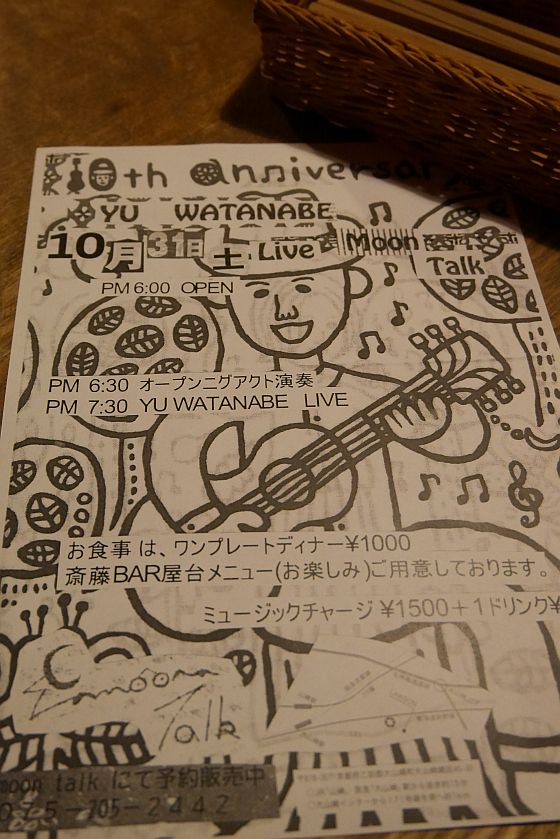 10th anniversar
YU WATANABE
10月31日土 Live Moon
Talk
PM 6:00 OPEN
PM 6:30 オープンニグアクト演奏
PM 7:30 YU WATANABE LIVE
お食事 は、ワンプレートディナー¥1000
斎藤BAR屋台メニュー(お楽しみ)ご用意しております。
ミュージックチャージ ¥1500＋1ドリンク¥
Talk
moon talk にて予約販売中
075-705-2442